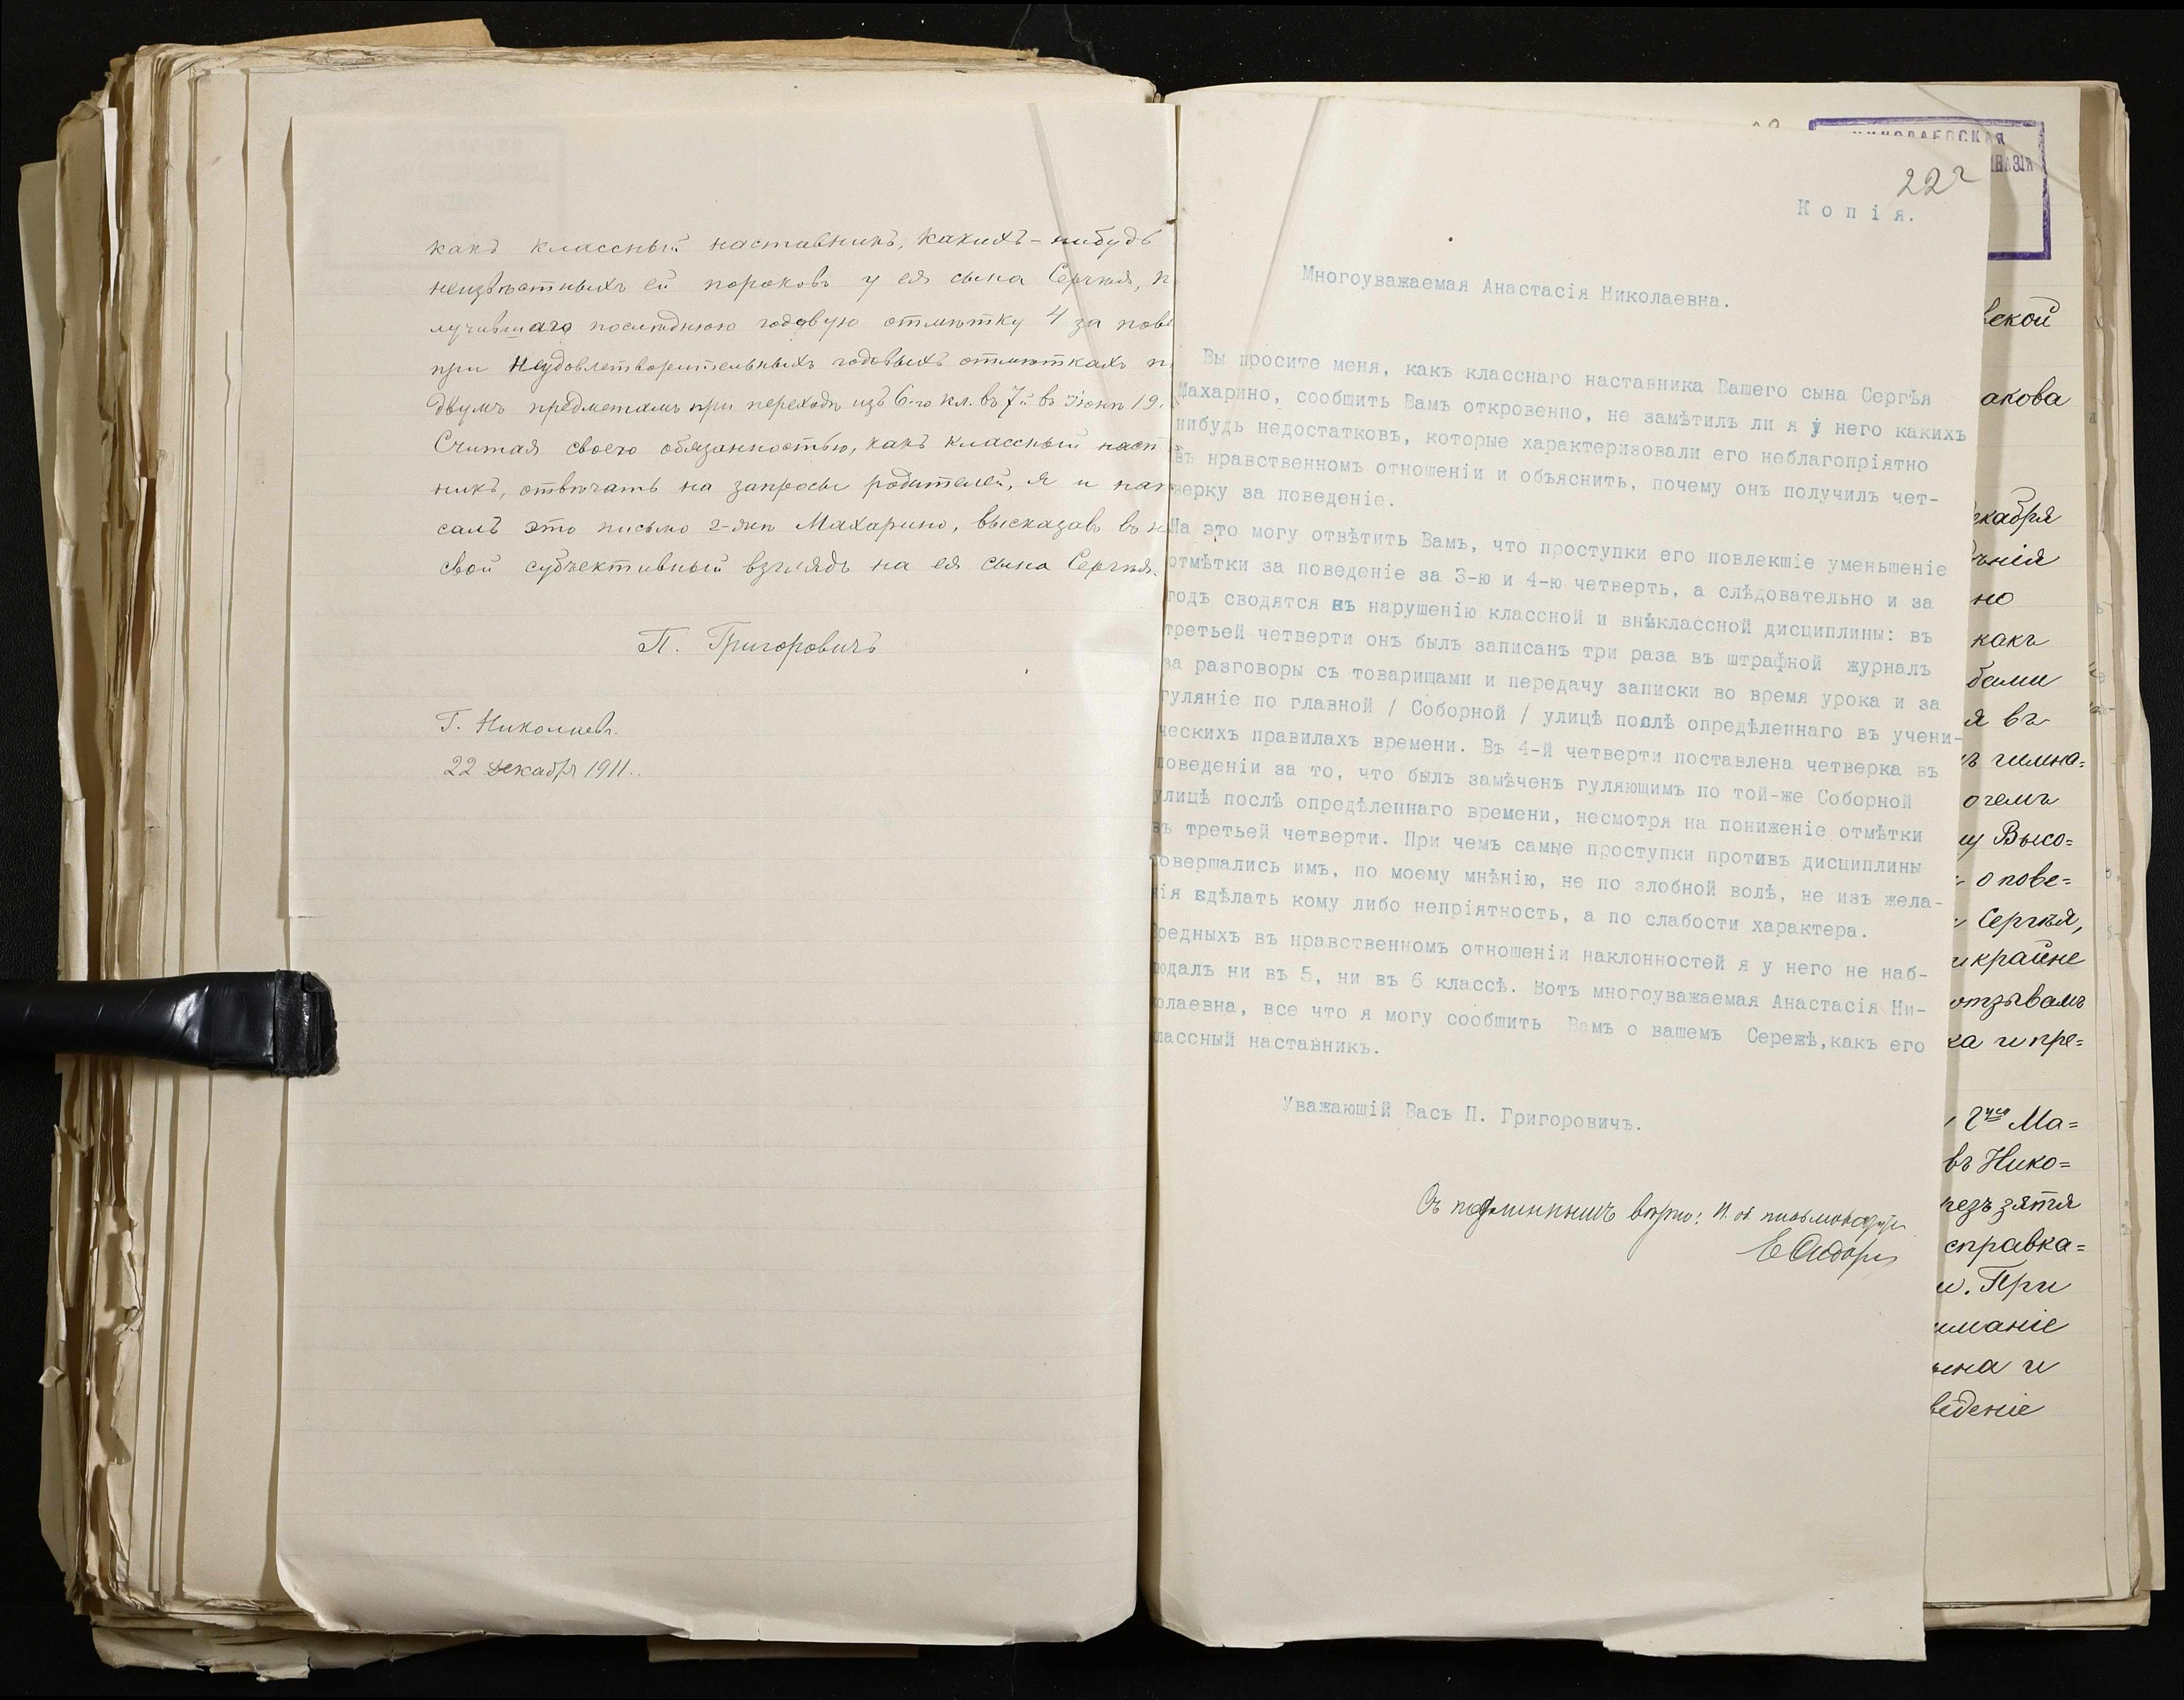 какъ классный наставникъ, какихъ-нибудь
неизвѣстныхъ ей пороковъ у ея сына Сергѣя, п
лучившаго послѣднюю годовую отмѣтку 4 за пове
при неудовлетворительныхъ годовыхъ отмѣткахъ п
двумъ предметамъ при переходѣ изъ 6-го кл. въ 7й въ Iюнѣ 19.
Считая своею обязанностью, какъ классный наст
никъ, отвѣчать на запросы родителей, я и нап
салъ это письмо г-жѣ Махарино, высказавъ въ н
свой субъективный взглядъ на ея сына Сергѣя.
П. Григоровичъ
Г. Николаевъ.
22 декабря 1911.
222
Копія.
Многоуважаемая Анастасія Николаевна.
Вы просите меня, какъ класснаго наставника Вашего сына Сергѣя
Махарино, сообщить Вамъ откровенно, не замѣтилъ ли я у него какихъ
нибудь недостатковъ, которые характеризовали его неблагопріятно
въ нравственномъ отношеніи и объяснить, почему онъ получилъ чет-
верку за поведеніе.
На это могу отвѣтить Вамъ, что проступки его повлекшіе уменьшеніе
отмѣтки за поведеніе за 3-ю и 4-ю четверть, а слѣдовательно и за
годъ сводятся къ нарушенію классной и внѣклассной дисциплины: въ
третьей четверти онъ былъ записанъ три раза въ штрафной журналъ
за разговоры съ товарищами и передачу записки во время урока и за
гуляніе по главной / Соборной / улицѣ послѣ опредѣленнаго въ учени-
ческихъ правилахъ времени. Въ 4-й четверти поставлена четверка въ
поведеніи за то, что былъ замѣченъ гуляющимъ по той-же Соборной
улицѣ послѣ опредѣленнаго времени, несмотря на пониженіе отмѣтки
въ третьей четверти. При чемъ самые проступки противъ дисциплины
совершались имъ, по моему мнѣнію, не по злобной волѣ, не изъ жела-
нія сдѣлать кому либо непріятность, а по слабости характера.
вредныхъ въ нравственномъ отношеніи наклонностей я у него не наб-
людалъ ни въ 5, ни въ 6 классѣ. Вотъ многоуважаемая Анастасія Ни-
колаевна, все что я могу сообщить Вамъ о вашемъ Сережѣ,какъ его
классный наставникъ.
Уважающій Васъ П. Григоровичъ.
Съ подлиннымъ вѣрно: И. об. письмоводи
НИКОЛАЕВСКАЯ
НАЗІЯ
вской
акова
екабря
но
какъ
я въ
гимна=
Высо=
о пове=
Сергѣя,
крайне
отзывамъ
ка и пре=
Ма=
въ Нико=
резъ зятя
справка=
При
иманіе
ына и
веденіе